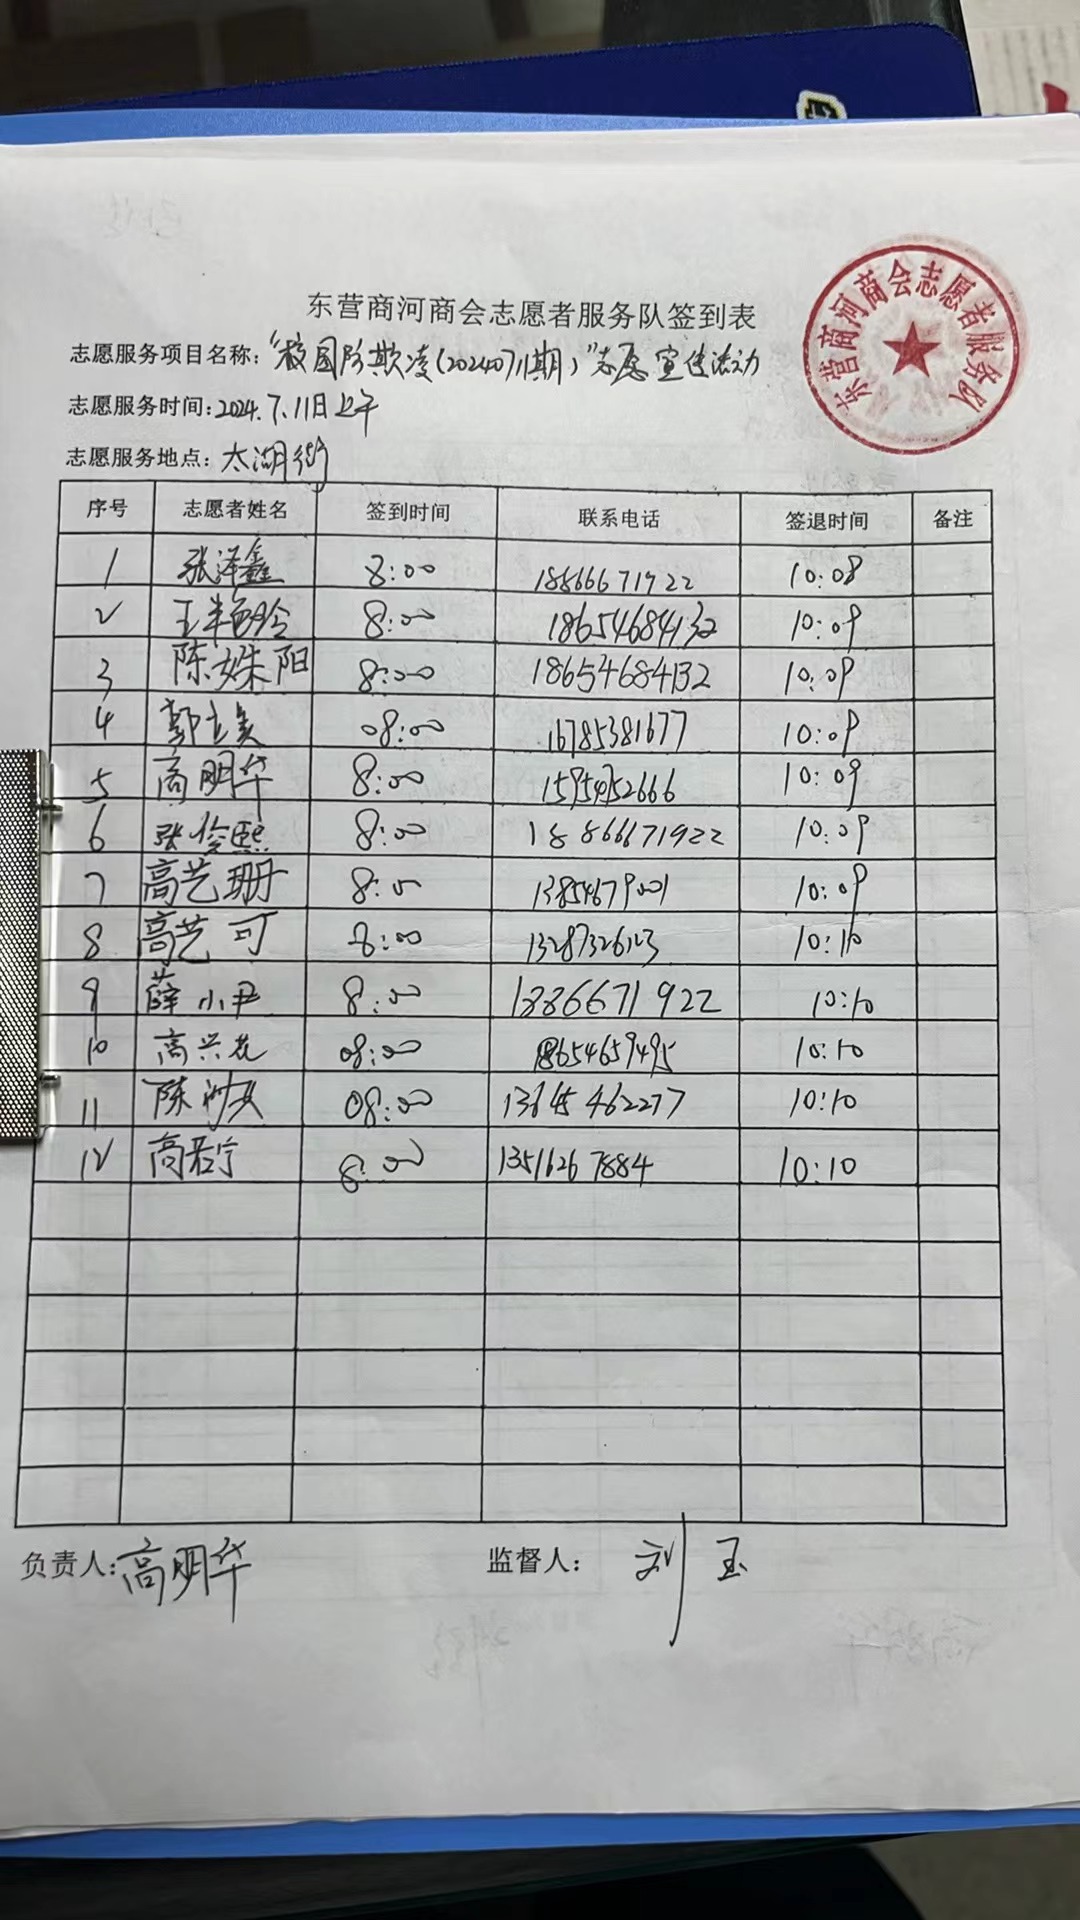 东营商河商会志愿者服务队
东营商河商会志愿者服务队签到表
志愿服务项目名称：“校园防欺凌(20240711期)”志愿宣传活动
志愿服务时间：2024.7.11日上午
志愿服务地点：太湖街
序号 志愿者姓名 签到时间 联系电话 签退时间 备注
1 张泽鑫 8:00 18866671922 10:08
2 8:00 18654684132 10:09
3 陈姝阳 8:00 18654684132 10:09
4 08:00 16785381677 10:09
5 高明华 8:00 15954352666 10:09
6 8:00 18866671922 10:09
7 高艺珊 8:00 13854679001 10:09
8 高艺可 8:00 10:10
9 薛小卫 8:00 18866671922 10:10
10 高兴花 08:00 18654659495 10:10
11 陈 08:00 13645462277 10:10
12 高若宁 8:00 13516267884 10:10
负责人：高明华 监督人：刘玉